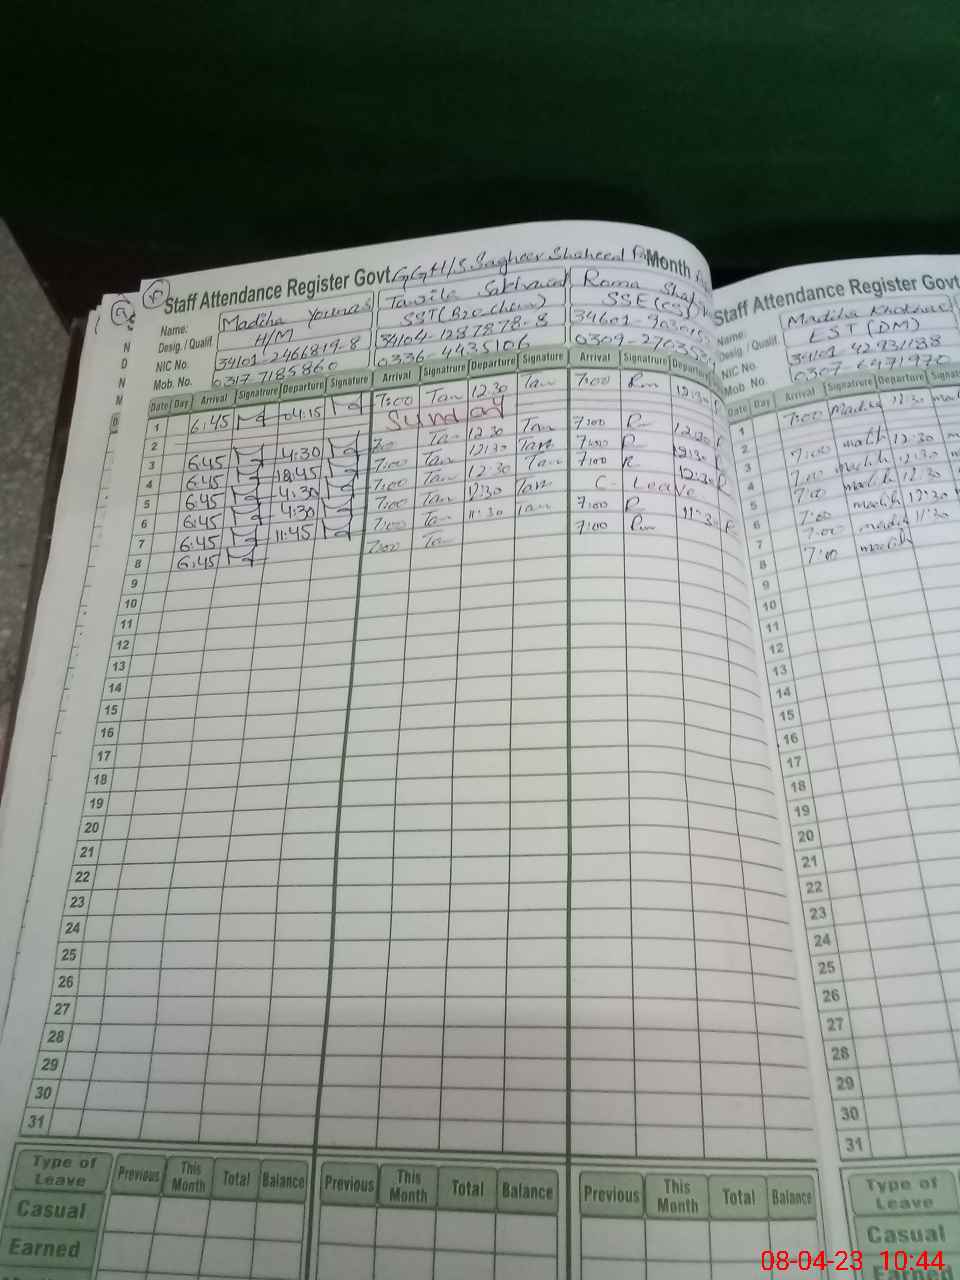 Staff Attendance Register Govt. GGH/S Sagheer Shaheed Month
Name: Madiha Younas Tanzila Roma
Desig. / Qualif. H/M SST (Bio-chem) SSE (CS)
NIC No. 34101-2466819-8 34104-1287878-8
Mob. No. 0317 7185860 0336-4435106
Date Day Arrival Signatrure Departure Signature Arrival Signatrure Departure Signature Arrival Signatrure Departure
1 6:45 04:15 7:00 Tan 12:30 Tan 7:00 Rm 12:30
2 Sunday
3 6:45 4:30 Tan 12:30 Tan 7:00 R 12:30
4 6:45 7:00 Tan 12:30 Tan 7:00 R 12:30
5 6:45 4:30 7:00 Tan 12:30 Tan 7:00 R 12:30
6 6:45 4:30 7:00 Tan 12:30 Tan C-Leave
7 6:45 11:45 7:00 Tan 11:30 Tan 7:00 R 11:30 R
8 6:45 7:00 Tan 7:00 Rm
9
10
11
12
13
14
15
16
17
18
19
20
21
22
23
24
25
26
27
28
29
30
31
Type of Leave Previous This Month Total Balance Previous This Month Total Balance Previous This Month Total Balance
Casual
Earned
Staff Attendance Register Govt
Name: Madiha
Desig. / Qualif. EST (DM)
NIC No.
Mob. No. 0307-6471970
Date Day Arrival Signatrure Departure
1 7:00 Madih 12:30
2
3 7:00 madih 12:30
4 7:00 madih 12:30
5 7:00 madih 12:30
6 7:00 madih 12:30
7 7:00 madih 11:30
8 7:00 madih
9
10
11
12
13
14
15
16
17
18
19
20
21
22
23
24
25
26
27
28
29
30
31
Type of Leave
Casual
08-04-23 10:44